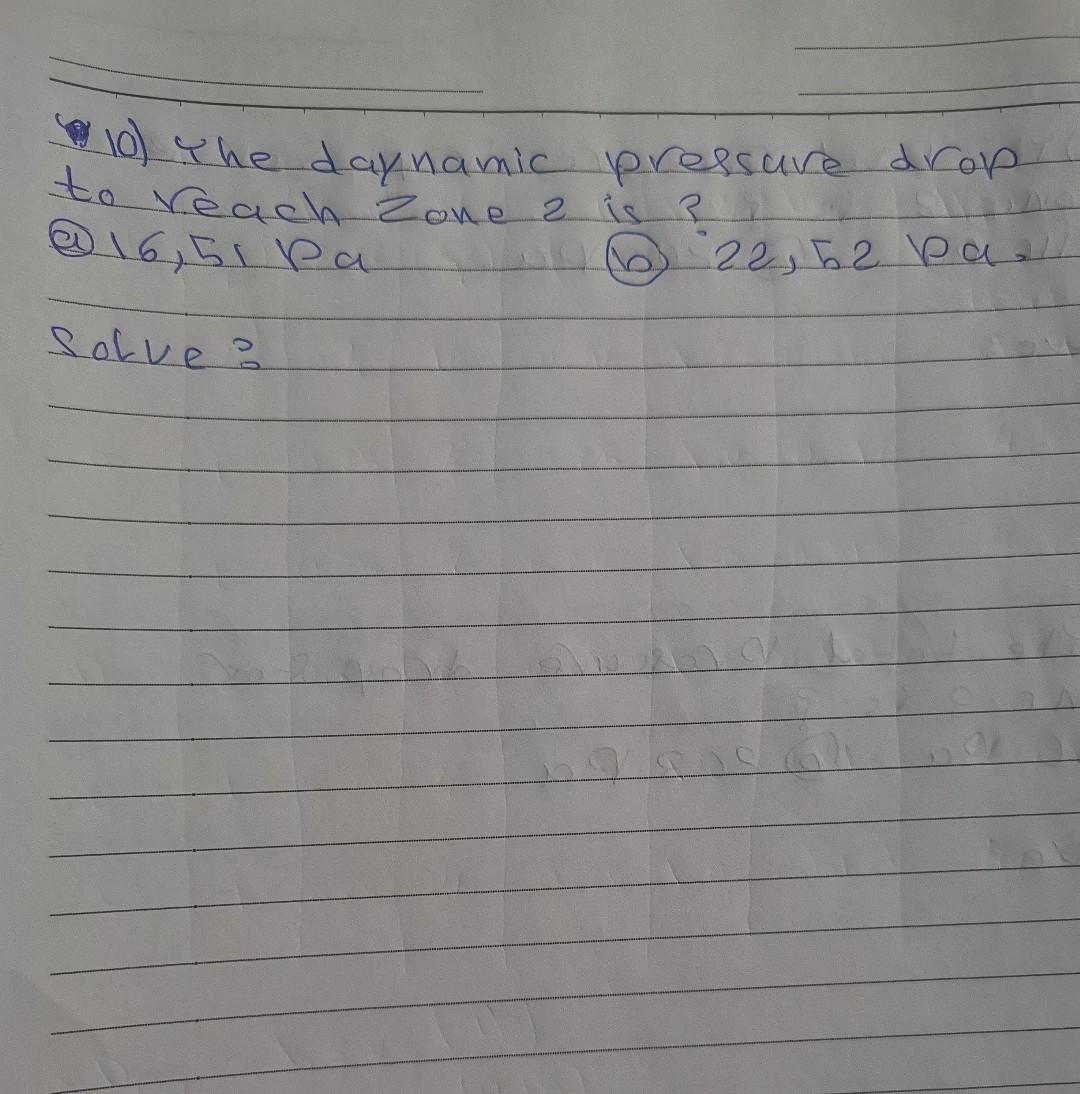 10) The daynamic pressure drop
to reach Zone 2 is ?
a) 16,51 Pa b) 22,52 Pa.
Solve :